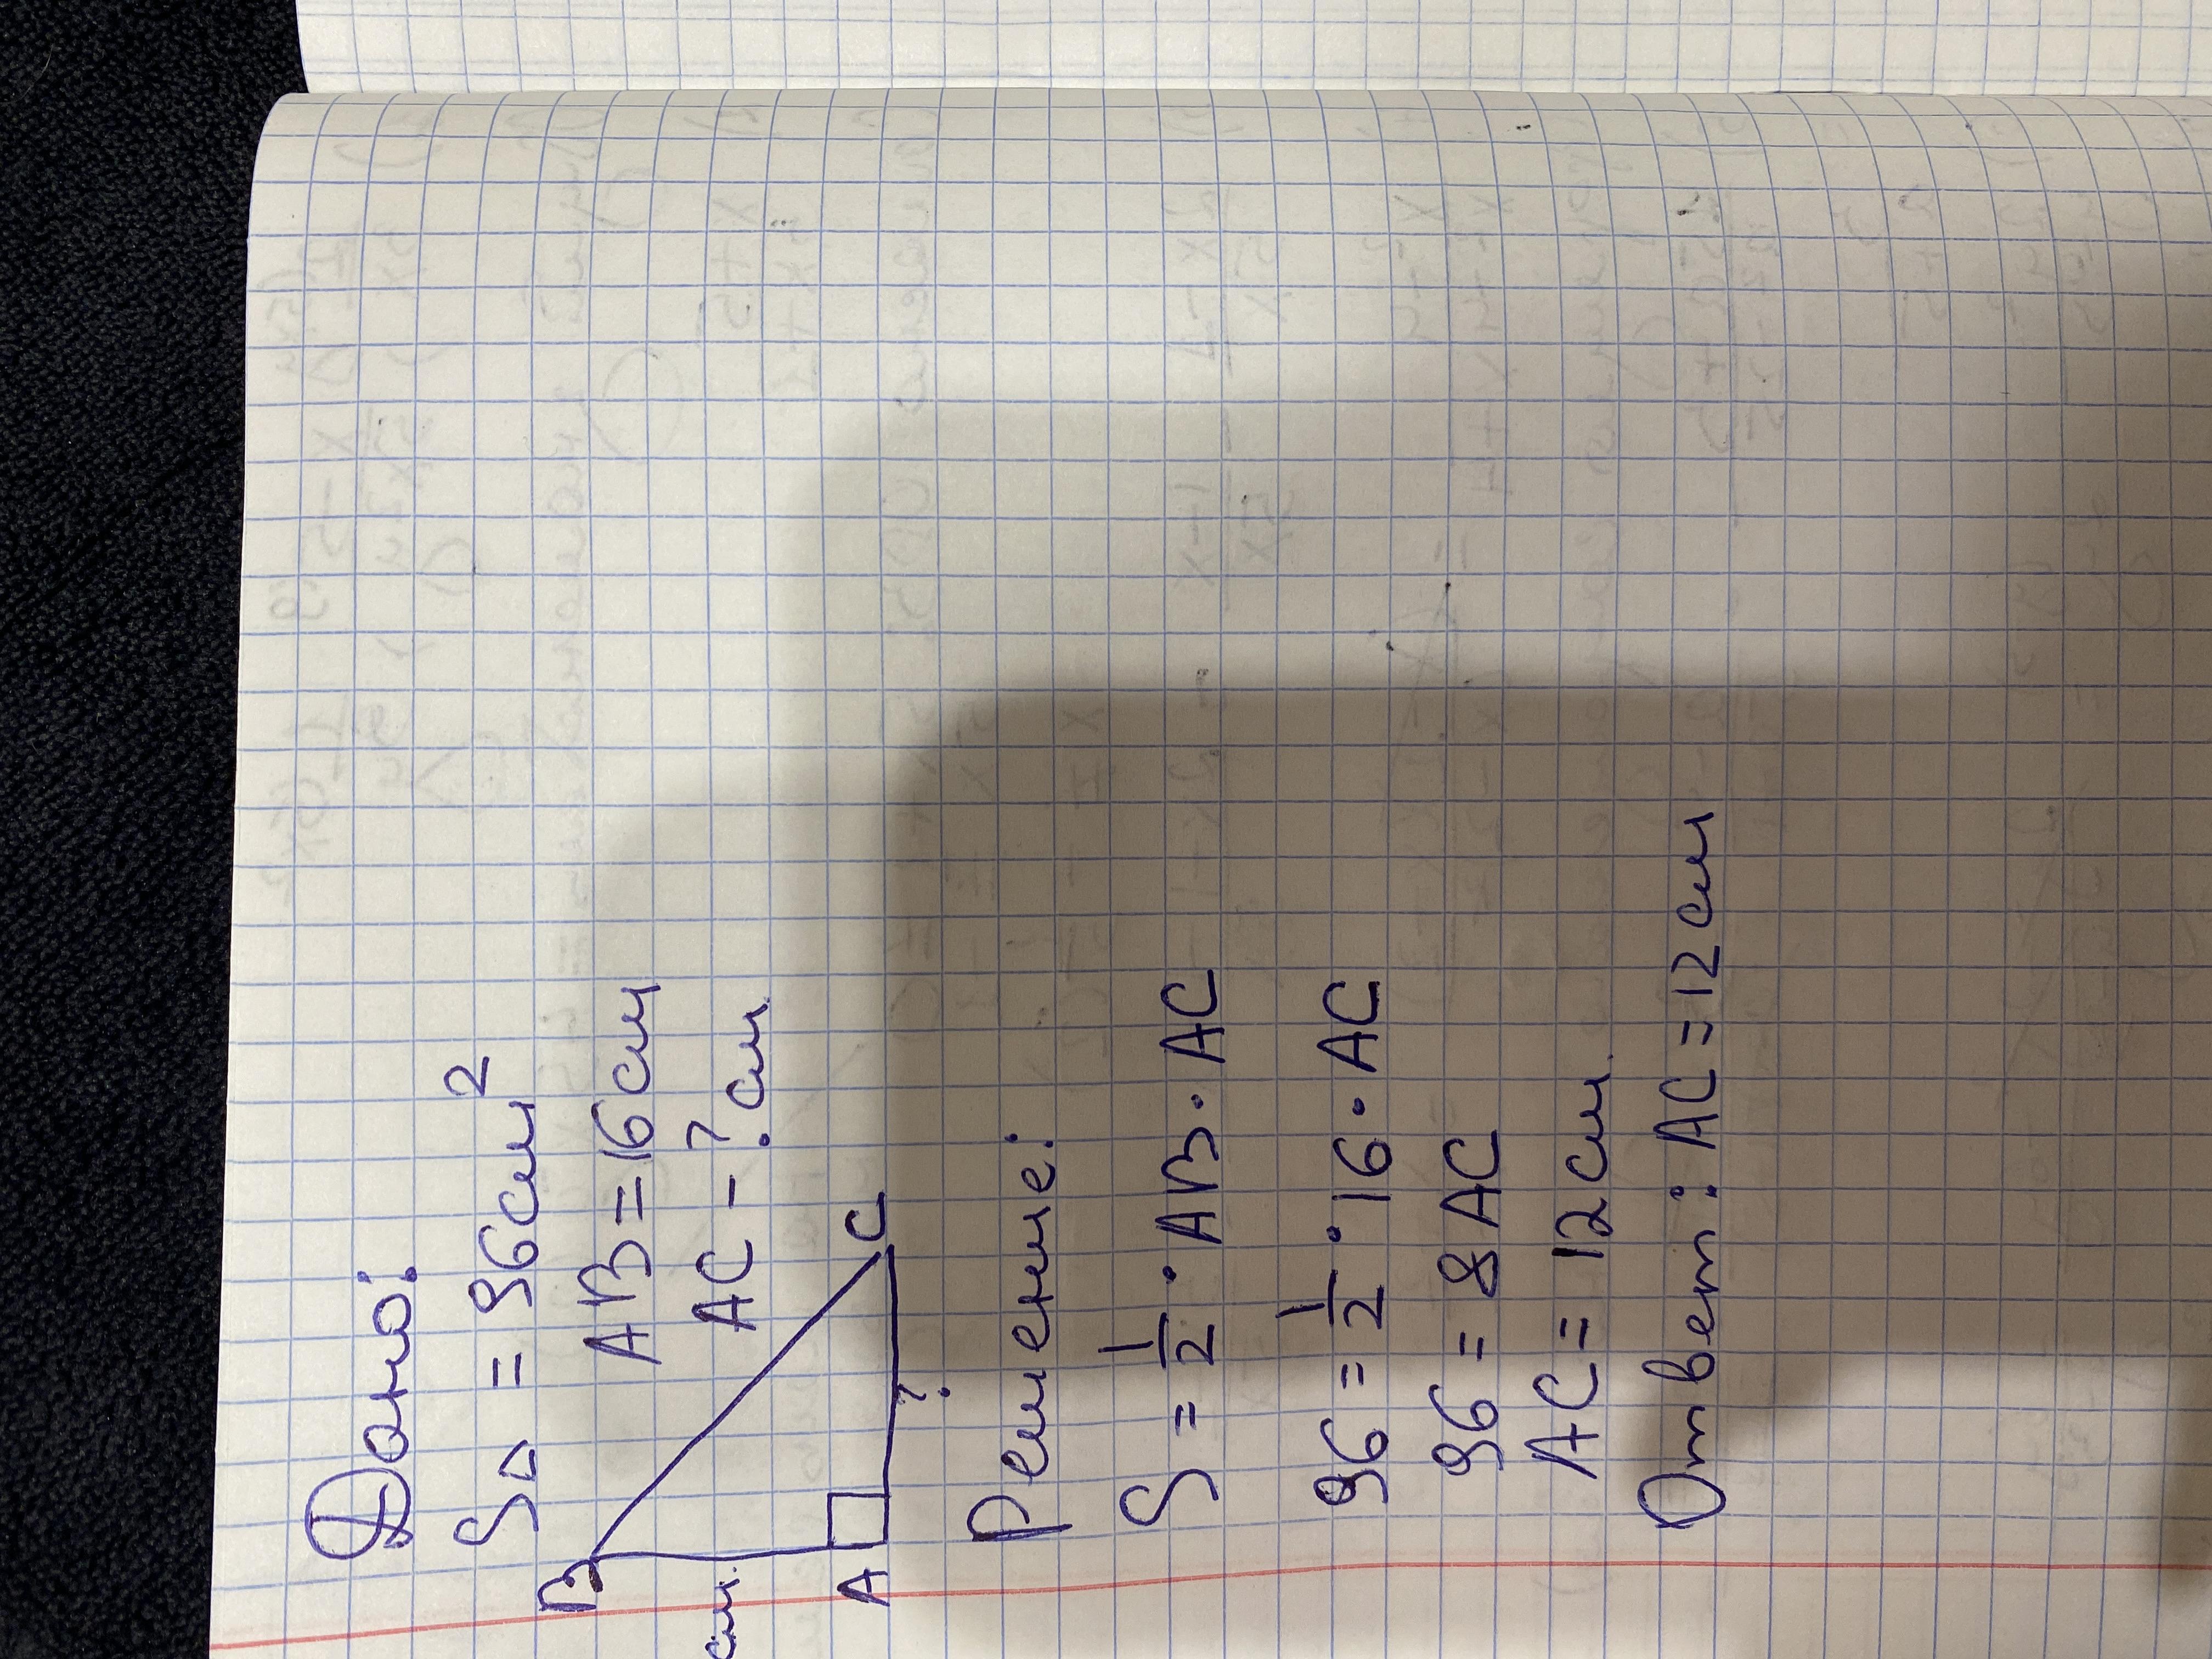 Дано:
S△ = 96см²
AB = 16см
AC - ? см
B
C
см
A
?
Решение:
S = 1/2 · AB · AC
96 = 1/2 · 16 · AC
96 = 8 AC
AC = 12см
Ответ: AC = 12см